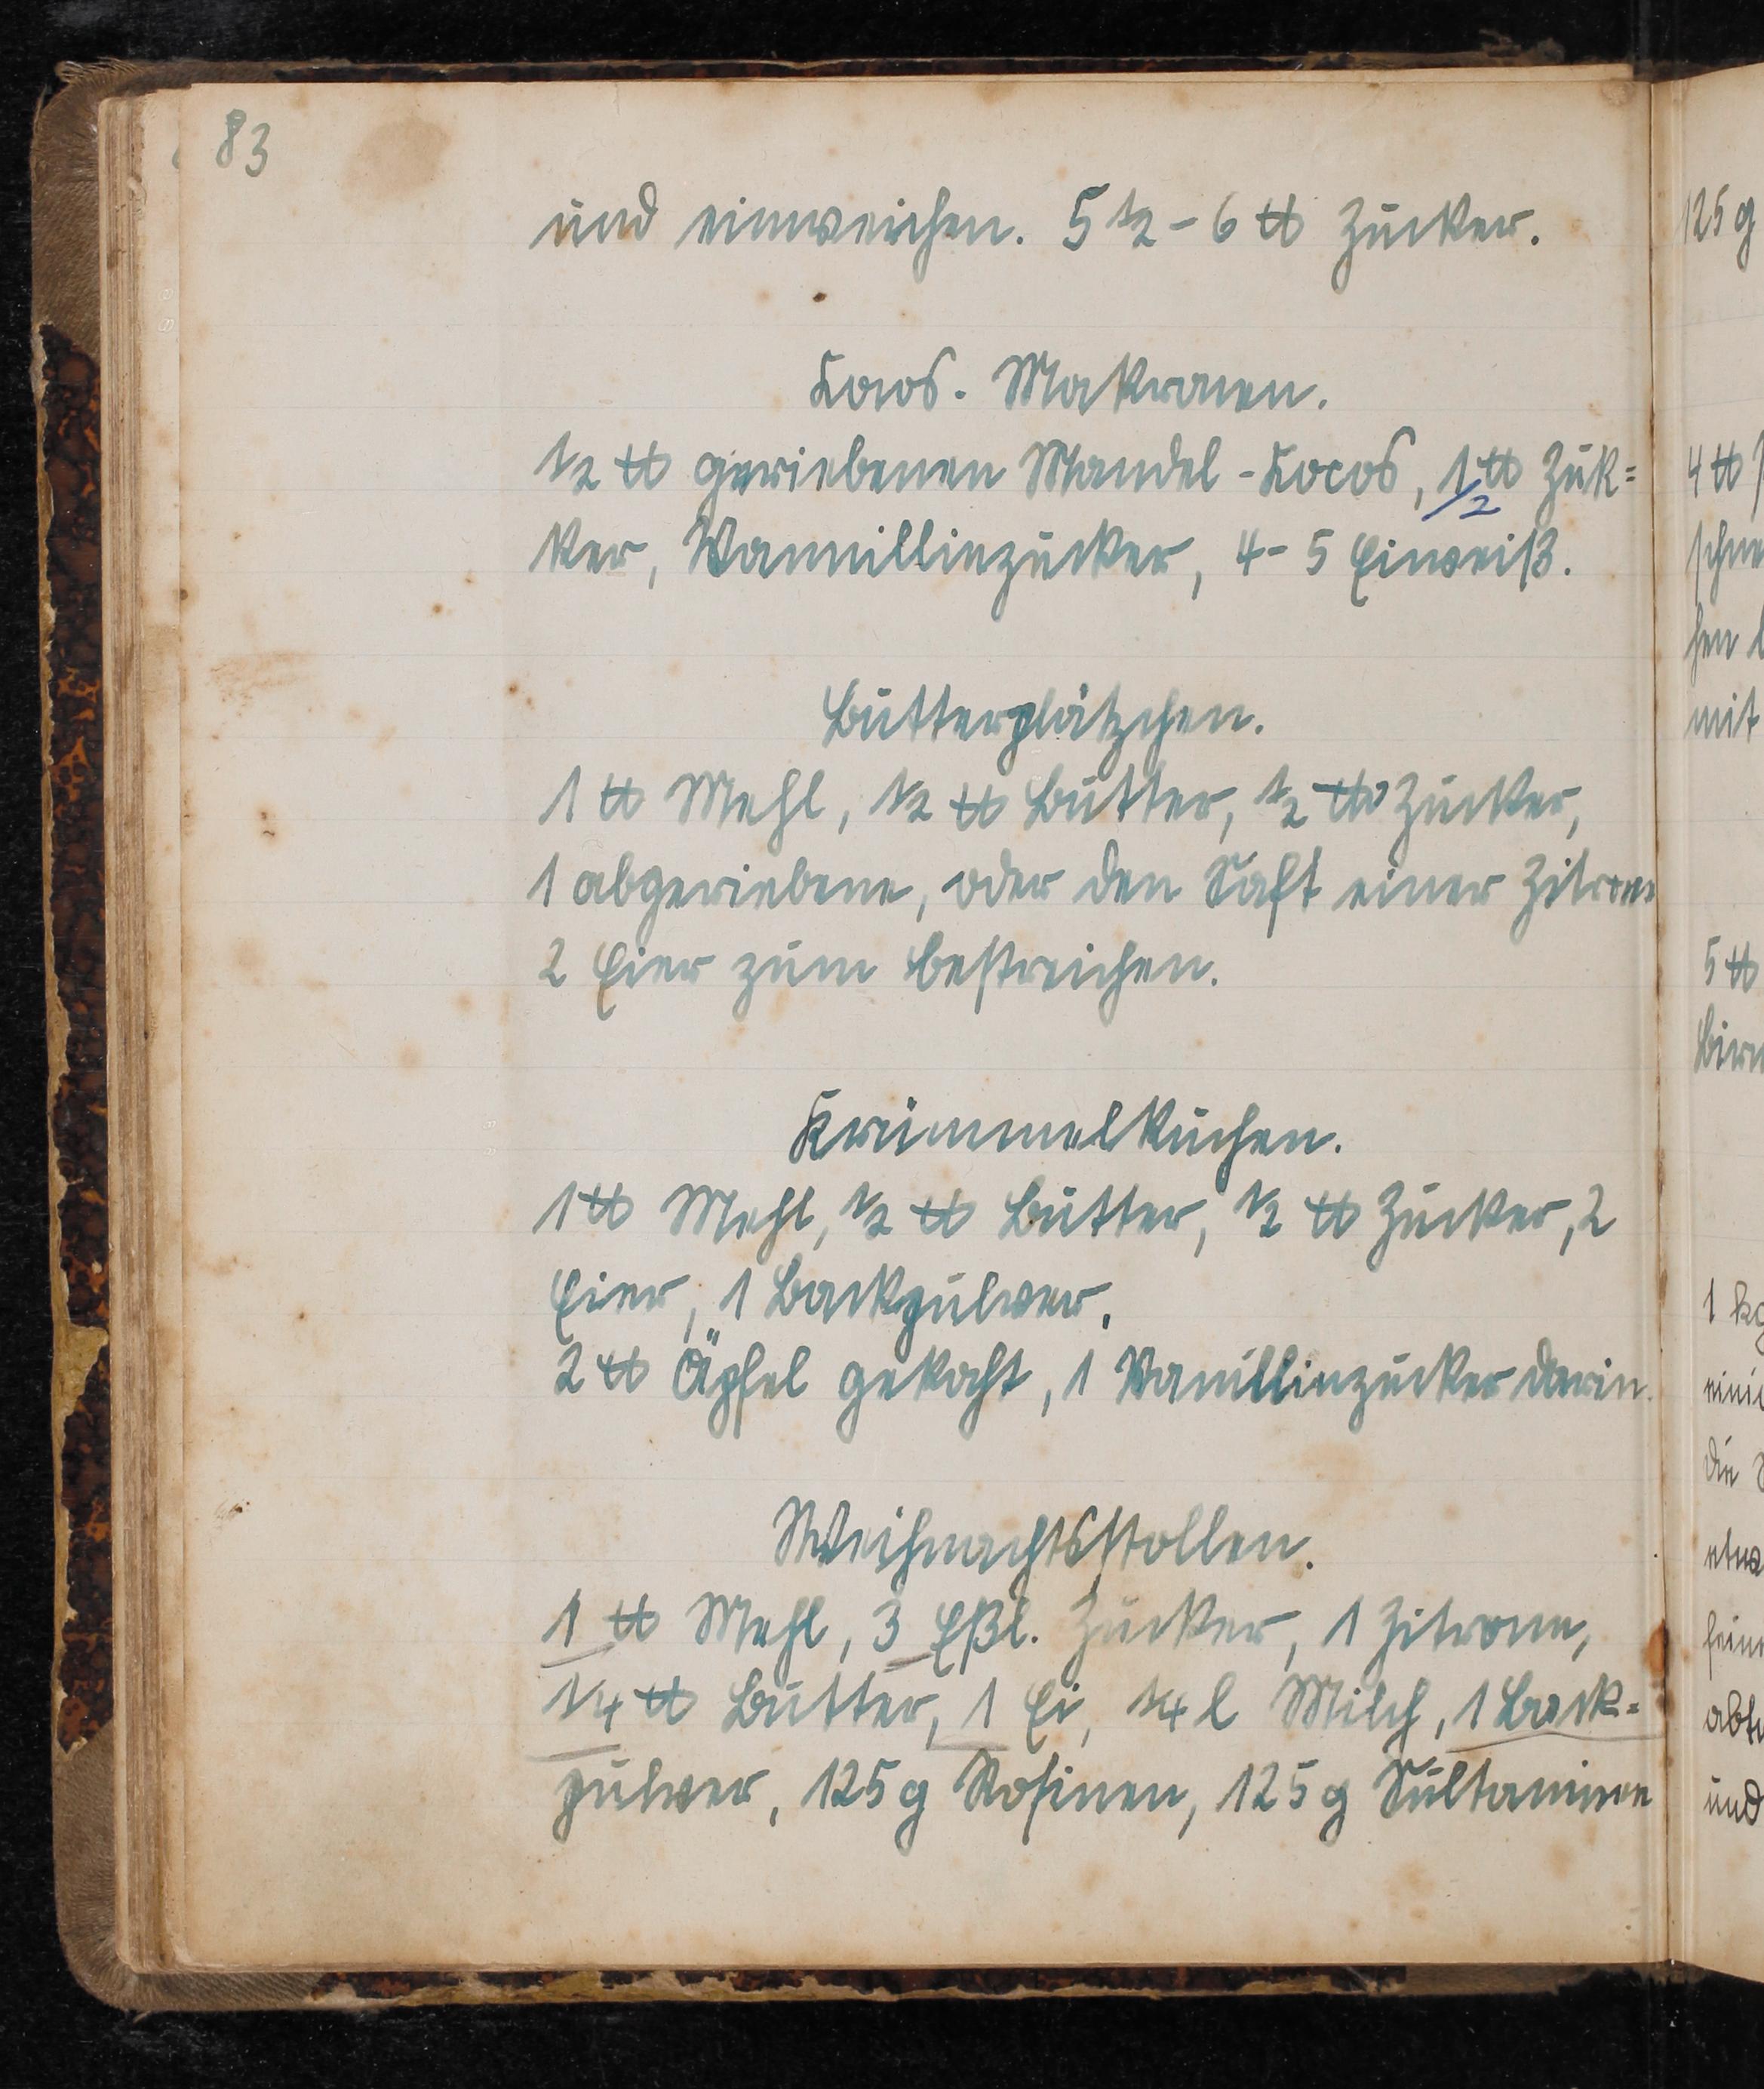 83
und einweichen. 5 1/2 - 6 ℔ Zucker.
Kocos-Makronen.
1/2 ℔ geriebenen Mandel-Kocos, 1 ℔ Zuk=
1/2
ker, Wannillinzucker, 4-5 Eiweiß.
Butterplätzchen.
1 ℔ Mehl, 1/2 ℔ Butter, 1/2 ℔ Zucker,
1 abgeriebene, oder den Saft einer Zitrone
2 Eier zum bestreichen.
Krümmelkuchen.
1 ℔ Mehl, 1/2 ℔ Butter, 1/2 ℔ Zucker, 2
Eier, 1 Backpulver.
2 ℔ Äpfel gekocht, 1 Vanillinzucker darin.
Weihnachtsstollen.
1 ℔ Mehl, 3 Eßl. Zucker, 1 Zitrone,
1/4 ℔ Butter, 1 Ei, 1/4 l Milch, 1 Back=
pulver, 125 g Rosinen, 125 g Sultaninen
125 g
4 ℔
mit
5 ℔
1 kg
die
und